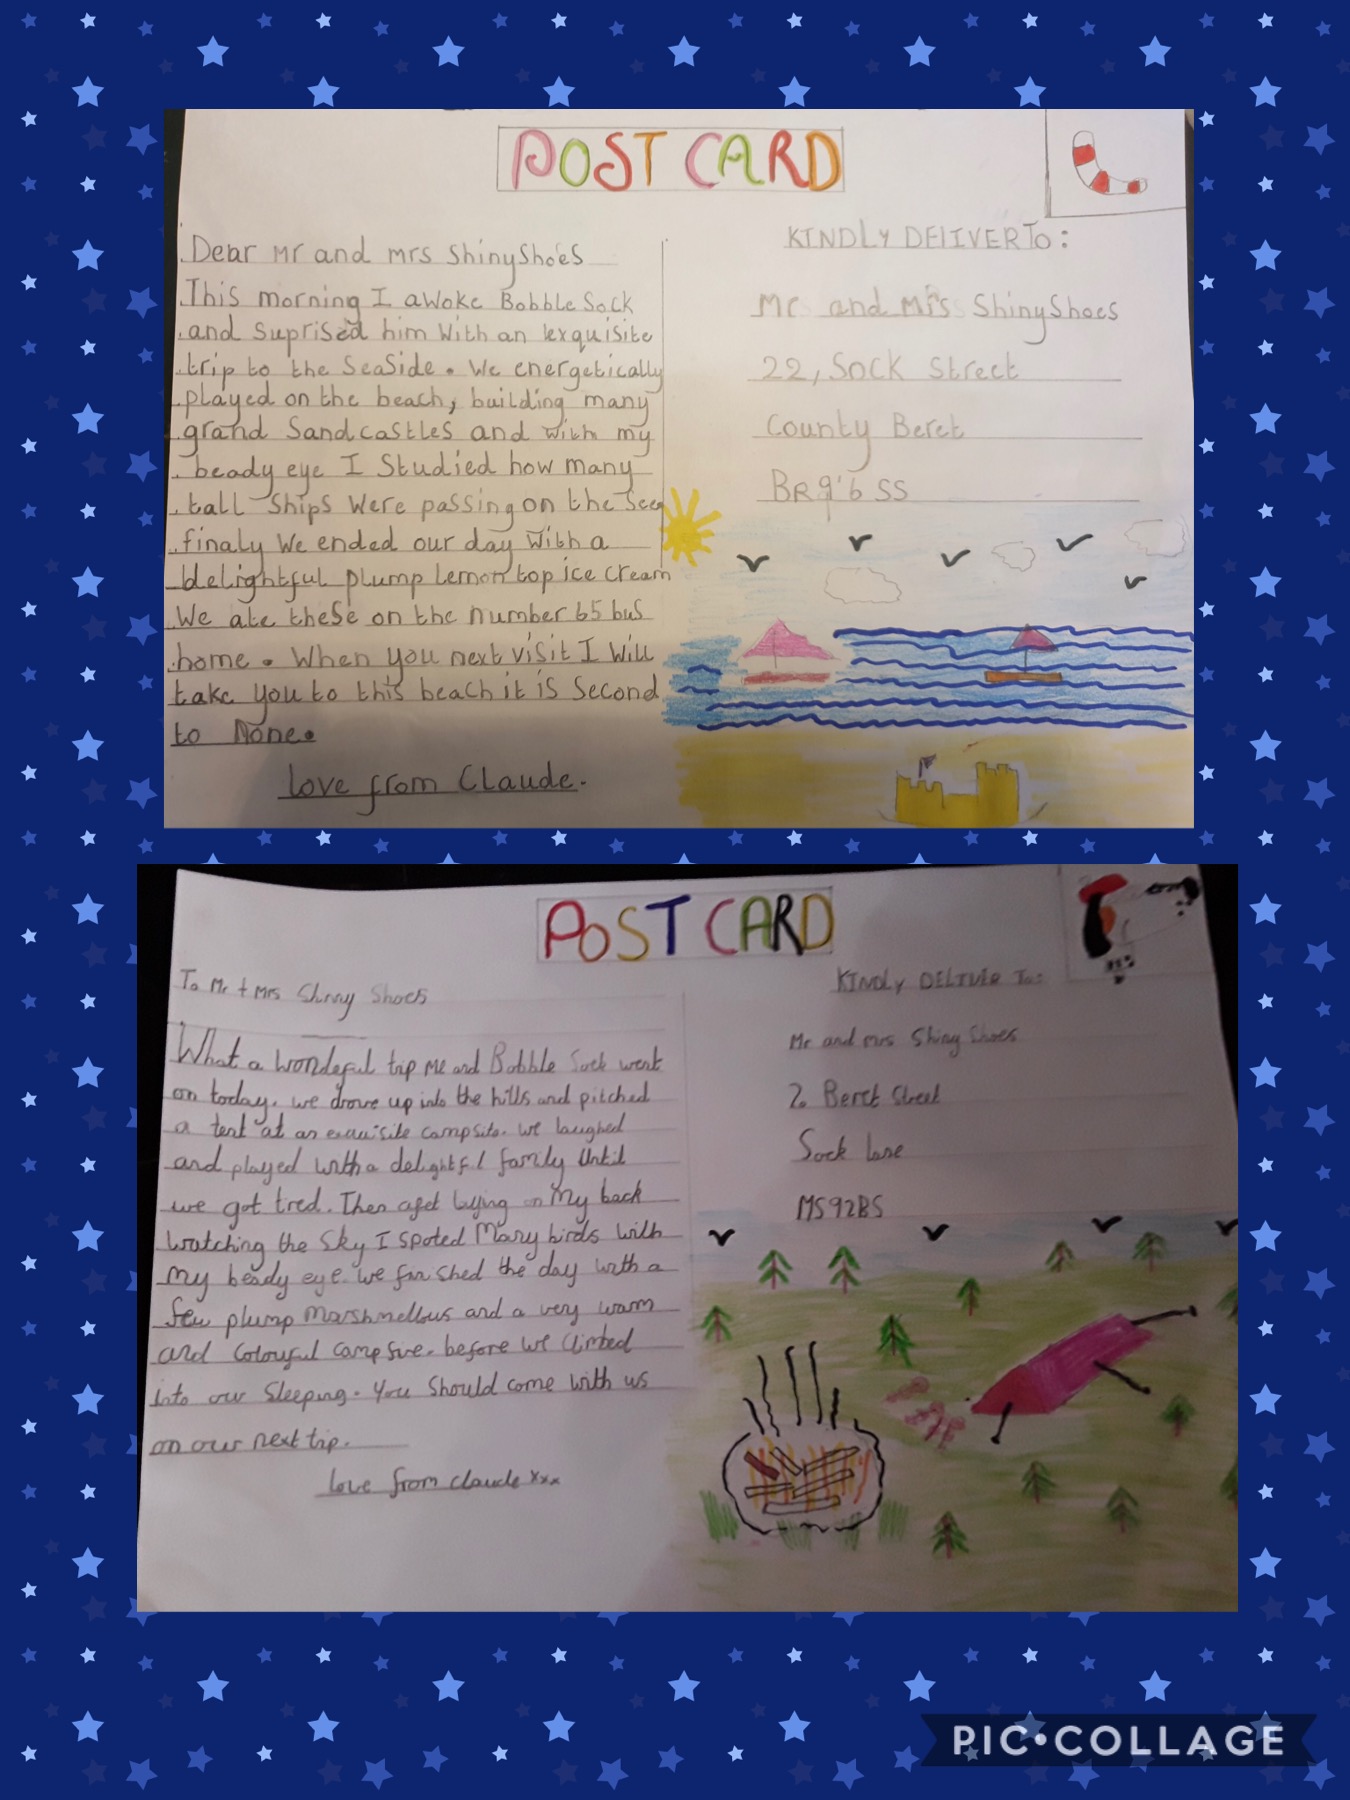 POST CARD
Dear Mr and mrs ShinyShoes
This morning I awoke Bobble Sock
and Suprised him With an exquisite
trip to the SeaSide. We energetically
played on the beach, building many
grand Sandcastles and with my
beady eye I Studied how many
tall Ships Were passing on the See
finaly We ended our day With a
delightful plump Lemon top ice cream
We ate these on the number 65 bus
home. When you next visit I Will
take you to this beach it is Second
to None.
love from Claude.
KINDLY DELIVER To:
Mr and Mrs ShinyShoes
22, Sock Street
County Beret
BR9'6 SS
POST CARD
To Mr + Mrs Shinny Shoes
What a wondeful trip me and Bobble Sock went
on today. we drove up into the hills and pitched
a tent at an exquisite campsite. we laughed
and played with a delightful family Until
we got tired. Then after laying on My back
watching the Sky I spoted Many birds with
my beady eye. we finished the day with a
few plump Marshmellows and a very warm
and colourful campfire. before we climbed
into our Sleeping. You Should come with us
on our next trip.
love from claude xxx
KINDLY DELIVER To:
Mr and mrs Shiny Shoes
2. Beret Street
Sock lane
MS92BS
PIC•COLLAGE